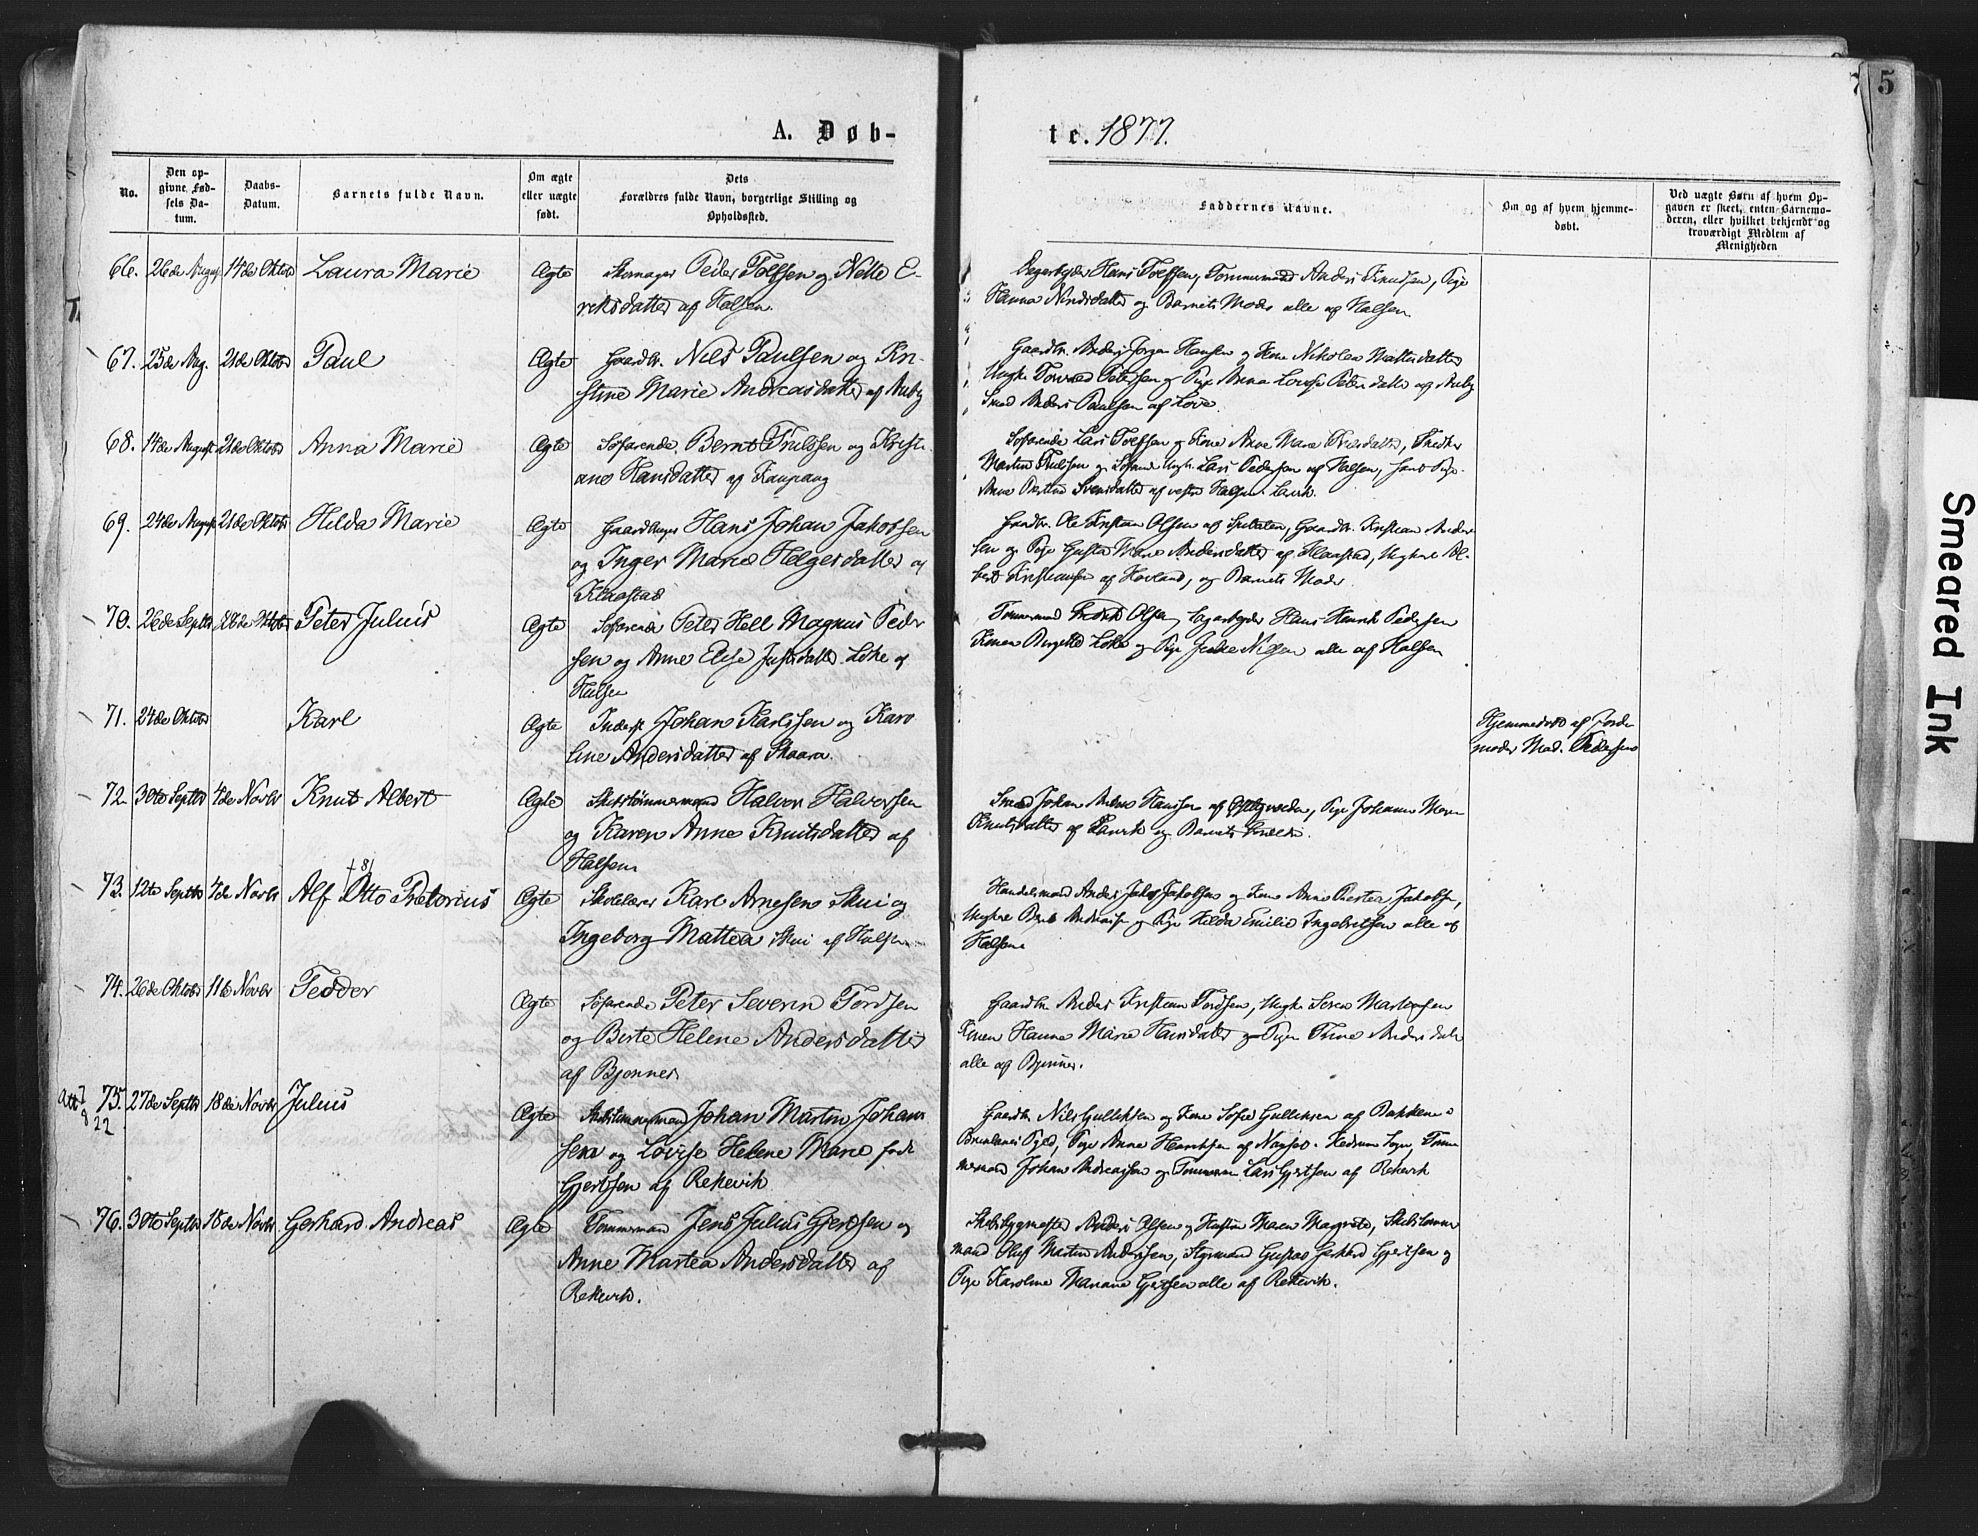 A. Døb-
te. 1877.
5
No.
Den op-
givne Fød-
sels Da-
tum.
Daabs-
Datum.
Barnets fulde Navn.
Om ægte
eller uægte
født.
Dets
Forældres fulde Navn, borgerlige Stilling og
Opholdssted.
Faddernes Navne.
Om og af hvem hjemme-
døbt.
Ved uægte Børn af hvem Op-
gaven er skeet, enten Barnemo-
deren, eller hvilket bekjendt og
troværdigt Medlem af
Menigheden
66. 26de August 14de Oktober Laura Marie Ægte Peder Tolfsen og Nette E-
riksdatter af Halsen.
Hans Tolfsen, Tømmermand Anders Knudsen, Pige
Hanna og Barnets Moder alle af Halsen
67. 25de Aug. 21de Oktober Paul Ægte Gaardbr. Nils Paulsen og Kri-
stine Marie Andreasdatter af Auby
Gaardbr. Anders Jørgen Hansen og Kone Nikolea
Ungk. Petersen og Pige Anna Lovise Petersdatter af Auby
Smed Anders Paulsen af Love.
68. 14de August 21de Oktober Anna Marie Ægte Søfarende Bernt Trulssen og Kristi-
ane Hansdatter af Kaupang
Søfarende Lars Tolfsen og Kone Anne Marie
Martin Trulssen og Ungk. Lars Pedersen af Halsen, samt Pige
Anne Svensdatter af vestre Halsen. Laurv.
69. 24de August 21de Oktober Hilda Marie Ægte Gaardbruger Hans Johan Jakobsen
og Inger Marie Helgesdatter af
Klaastad
Gaardbr. Ole Kristian Olsen af Gaardbr. Kristian Ander-
sen og Pige Marie Andersdatter af Klaastad, Ungkarl Al-
bert Kristiansen af Hovland, og Barnets Moder.
70. 26de Septbr 28de Oktober Peter Julius Ægte Søfarende Peter Hell Magnus Peder
sen og Anne Elise Justsdatter Løke af
Halsen
Tømmermand Fredrik Olsen, Hans Henrik Pedersen
Konen Løke og Pige Nilsen alle af Halsen
71. 24de Oktober Karl Ægte Inderst Johan Karlssen og Karo
line Andersdatter af Skaara.
Hjemmedøbt af Jorde
moder Mad. Pedersen
72. 30te Septbr 4de Novbr Knut Albert Ægte Skibstømmermand Halvor Halvorsen
og Karen Anne Knutsdatter af
Halsen
Smed Johan Hansen af Pige Johanne
Knutsdatter af Laurvik og Barnets
73. 12te Septbr 4de Novbr Alf Otto Pretorius Ægte Skolelærer Karl Arnesen Skui og
Ingeborg Mattea Skui af Halsen
Handelsmand Anders Jakob Jakobsen og Kone Anne Jakobsen,
Ungkarl Andreasen og Pige Hilda Emilie Ingebretsen alle af
Halsen
74. 26de Oktober 11te Novbr Tedder Ægte Søfarende Peter Severin Tordsen
og Berte Helene Andersdatter
af Bjønnes
Gaardbr. Anders Kristian Tordsen, Ungk. Søren
Konen Hanna Marie Hansdatter og Pigen Trine Andersdatter
alle af Bjønnes.
Att 7
8 22
75. 27de Septbr 18de Novbr Julius Ægte Skibstømmermand Johan Martin Johan
sen og Lovise Helene Marie født
Gjertsen af Rekevik
Gaardbr. Nils Gulliksen og Kone Sofie Gulliksen af Bakken i
Brunlanes Pgld, Pige Anne Henriksen af Hedrum Sogn, Tøm
mermand Johan Andreassen og Tømmerm. Lars Gjertsen af Rekevik
76. 30te Septbr 18de Novbr Gerhard Andreas Ægte Tømmermand Jens Julius Gjertsen og
Anne Martea Andersdatter af
Rekevik.
Skibsbygmester Anders Olsen og Hustru Maren Margrete, Skibstømmer
mand Oluf Martin Anderssen, Styrmand Gustav Gerhard Gjertsen og
Pige Karoline Mariane Gjertsen alle af Rekevik.
Smeared Ink